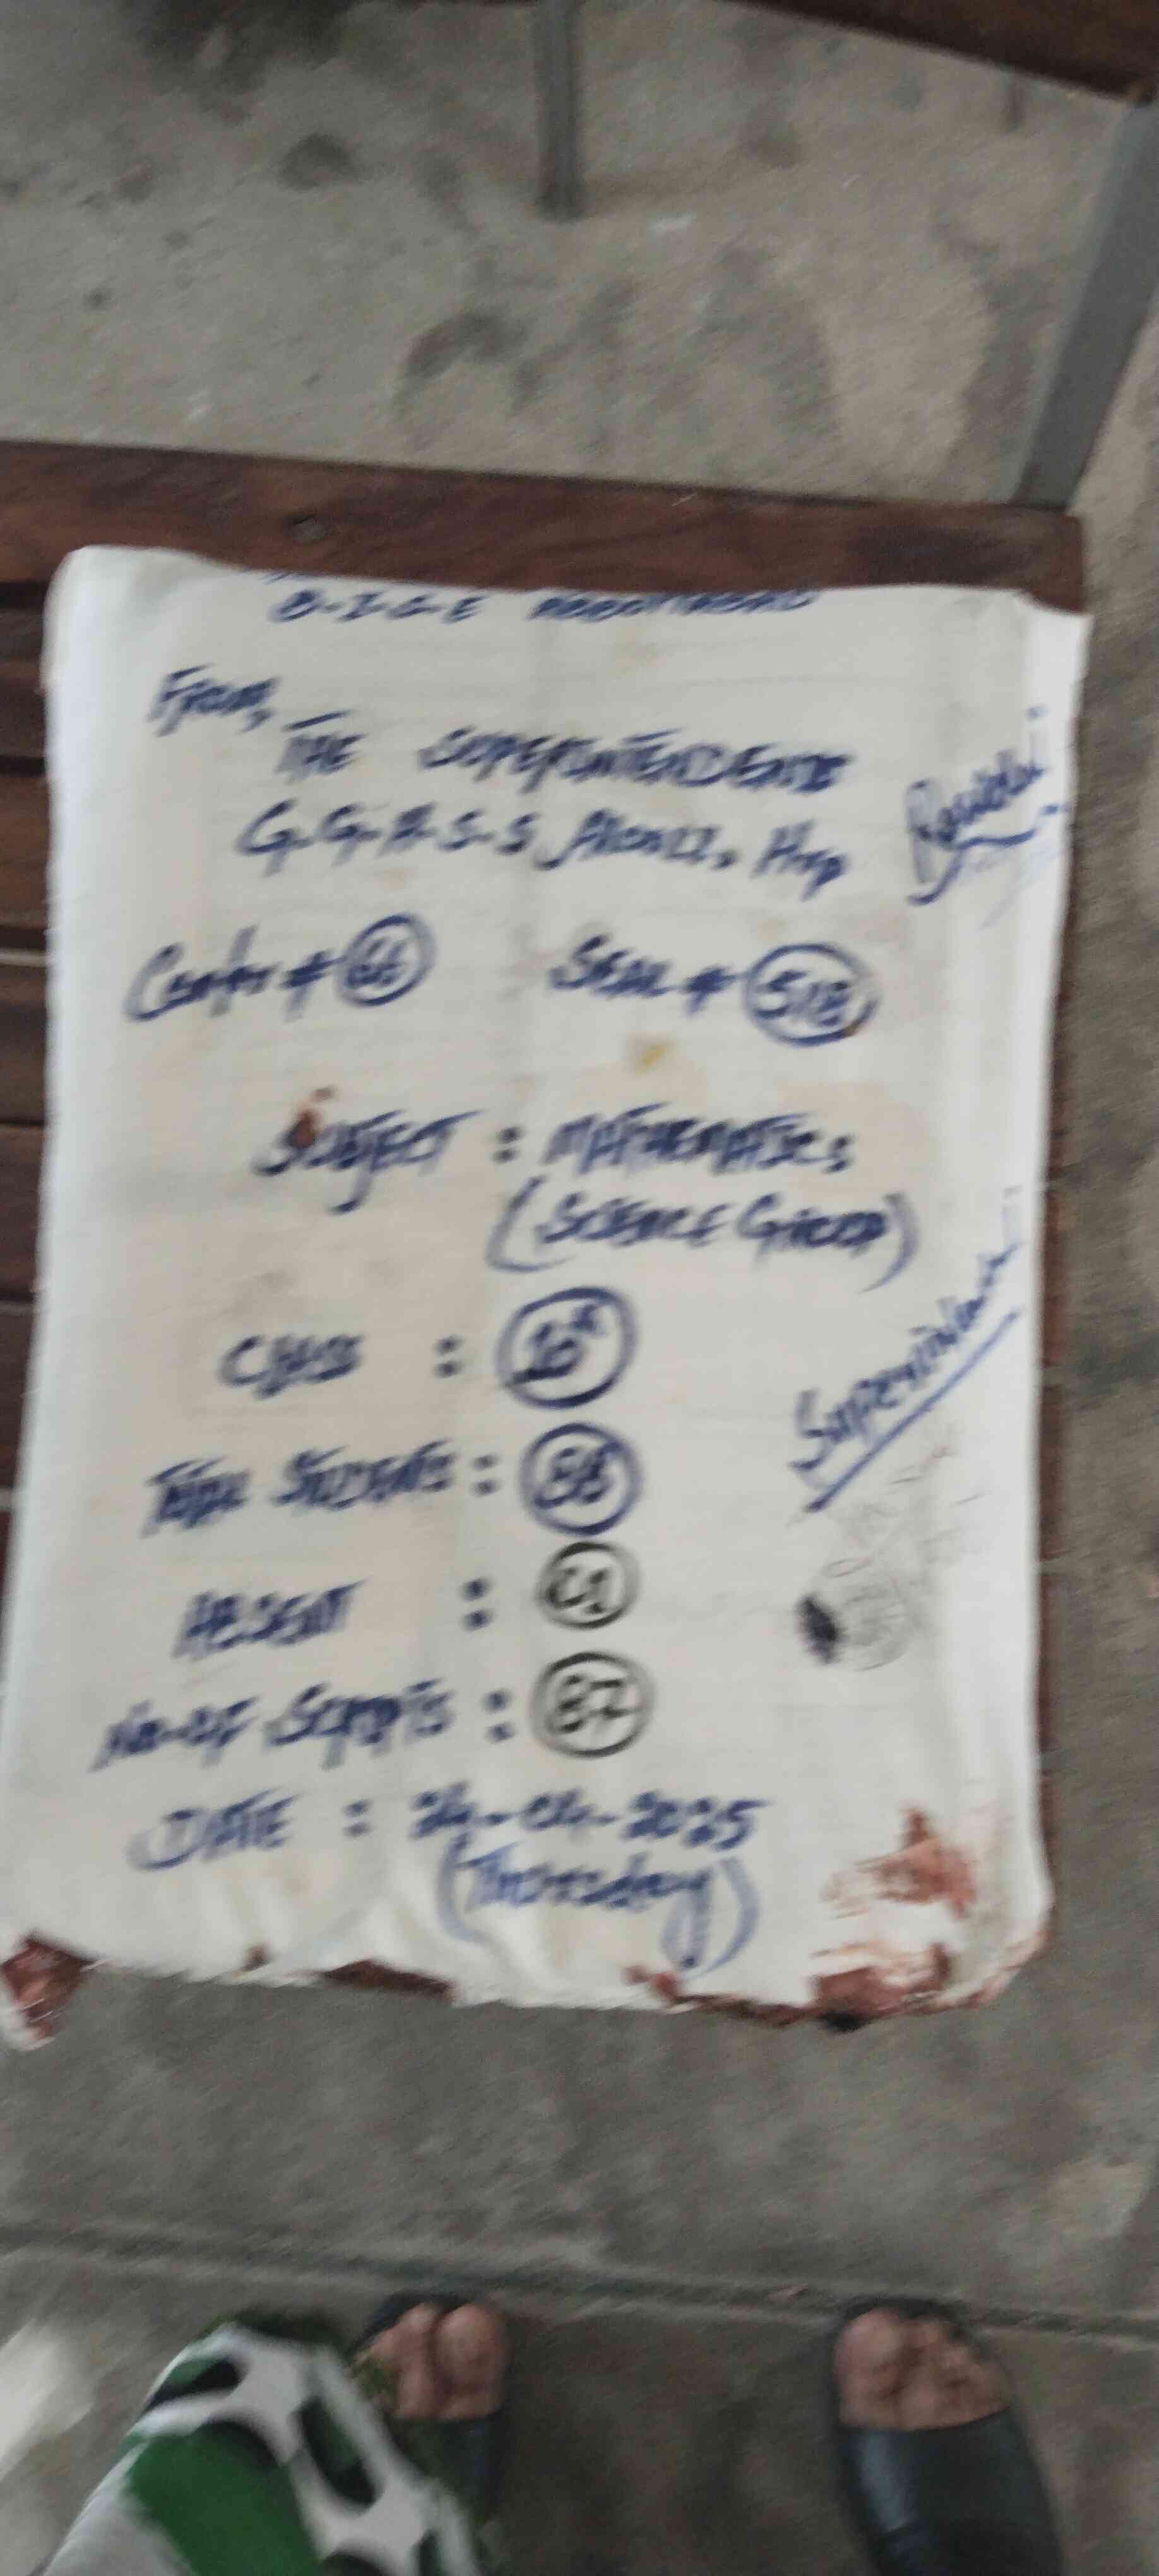 B.I.S.E ABBOTTABAD
From,
THE SUPERINTENDENT
G.G.H.S.S, Hrp
Center # 66 Seal # 518
SUBJECT : MATHEMATICS
(SCIENCE GROUP)
CLASS : 10th
TOTAL STUDENTS : 88
ABSENT : 01
No. of Scripts : 87
DATE : 24-04-2025
(Thursday)
Superintendent